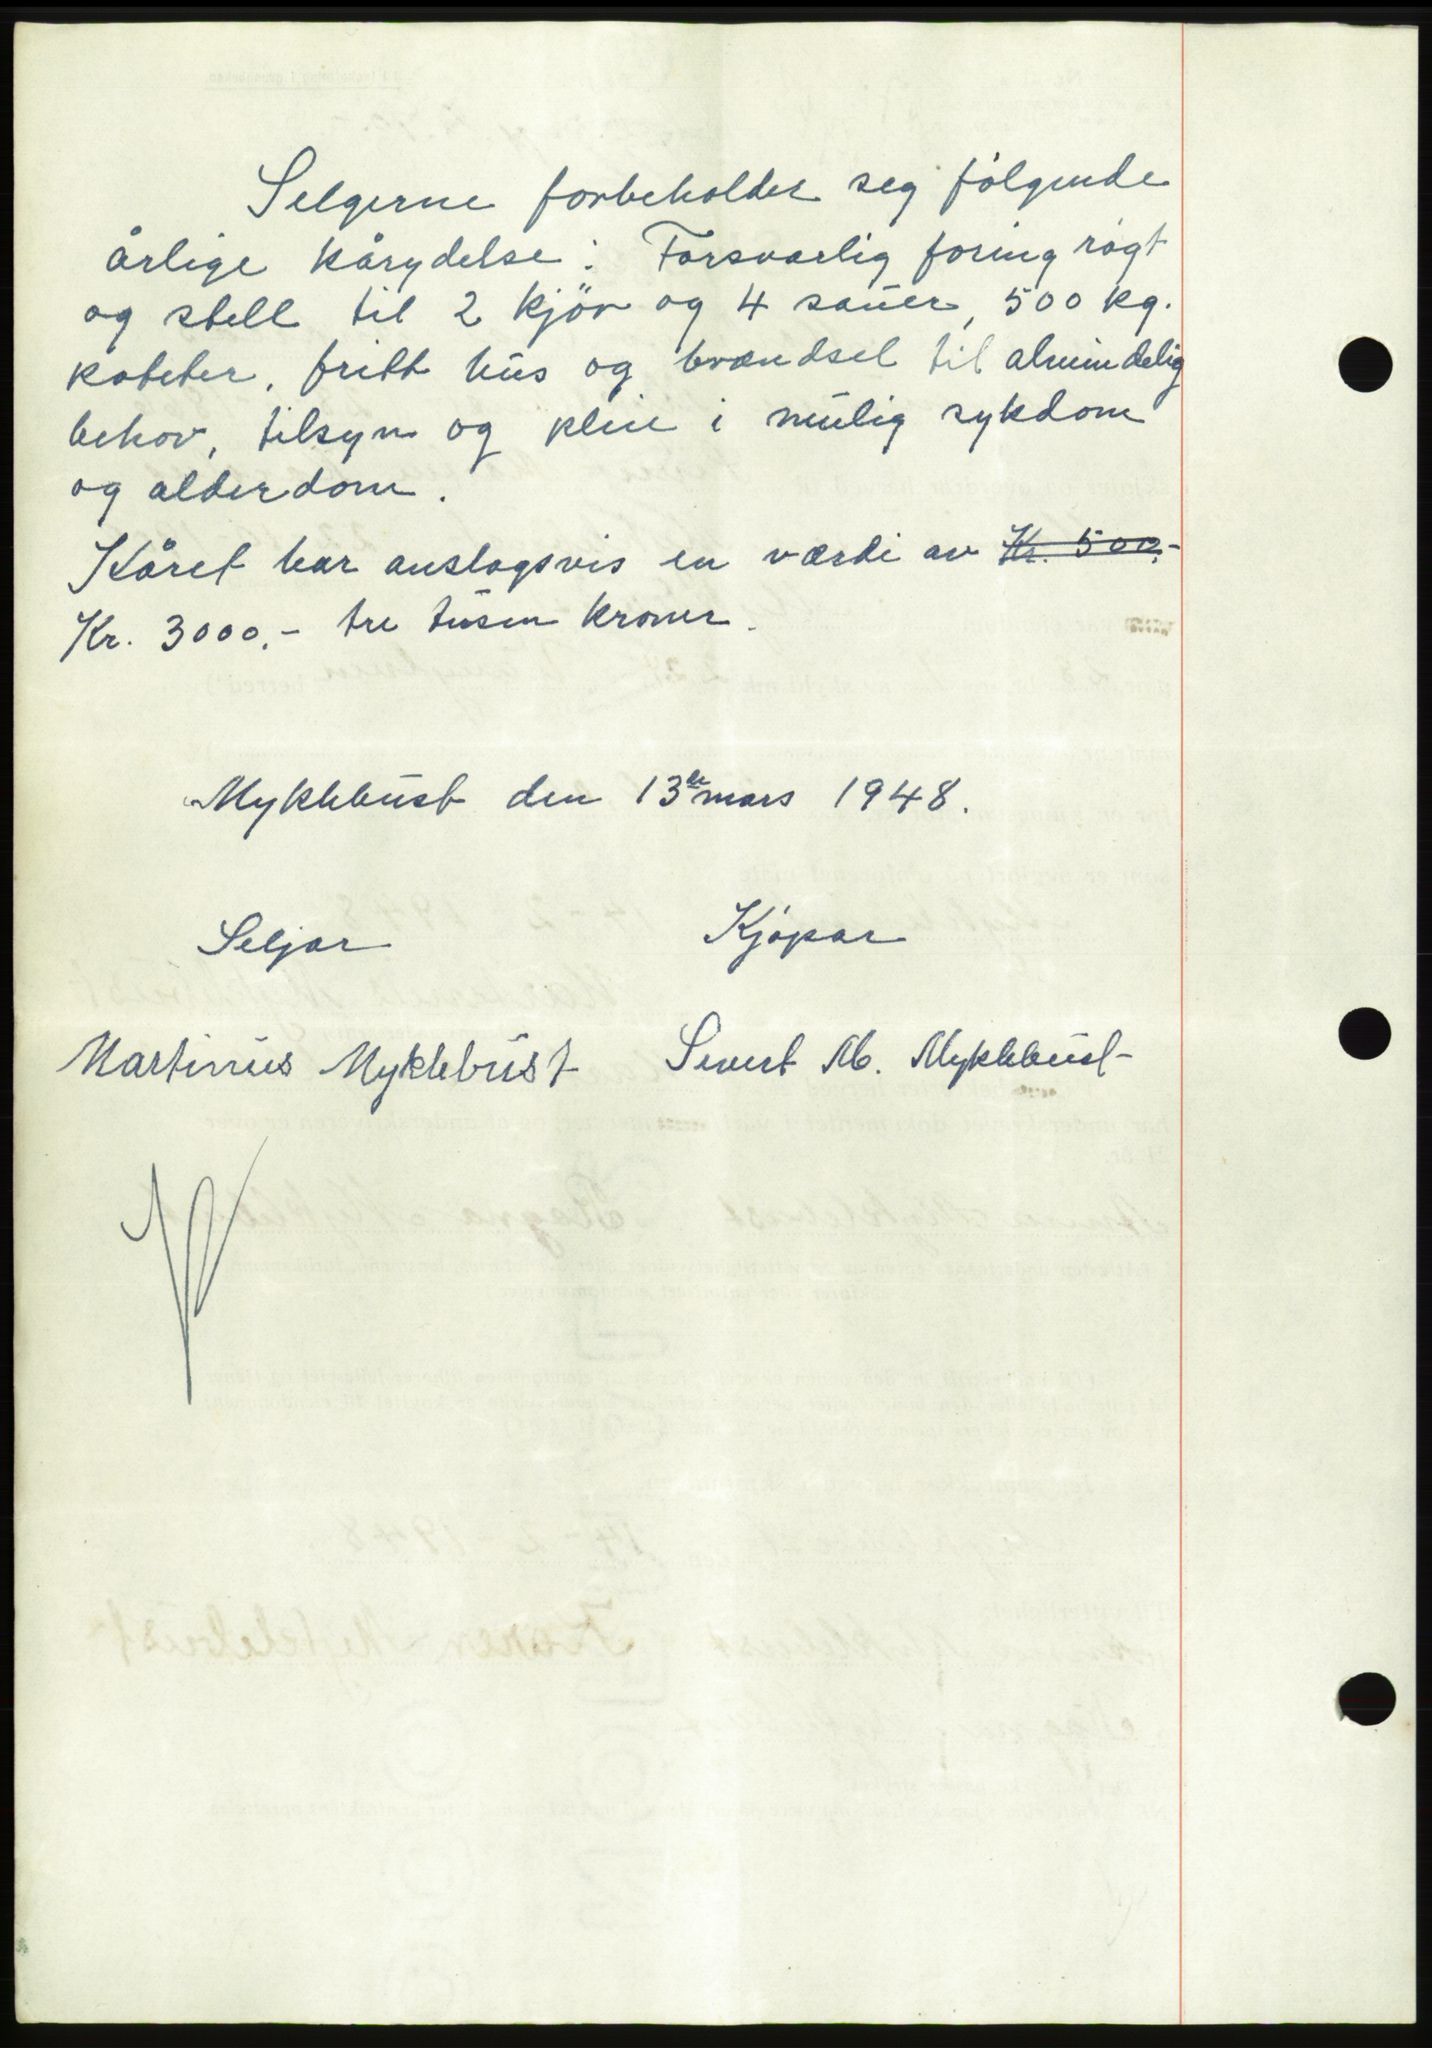 Selgerne forbeholder seg følgende
årlige kårydelse: Forsvarlig foring røgt
og stell til 2 kjör og 4 sauer, 500 kg.
poteter, fritt hus og brændsel til almindelig
behov, tilsyn og pleie i mulig sykdom
og alderdom.
Kåret har anslagsvis en værdi av Kr. 500.-
Kr. 3000.- tre tusen kroner.
Myklebust den 13de mars 1948.
Seljar Kjøpar
Martinus Myklebust Severt M. Myklebust